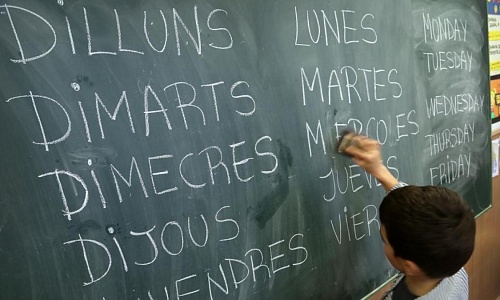 DILLUNS
DIMARTS
DIMECRES
DIJOUS
VENDRES
LUNES
MARTES
MERCO ES
JUEVES
VIER
MONDAY
TUESDAY
WEDNESDAY
THURSDAY
FRIDAY